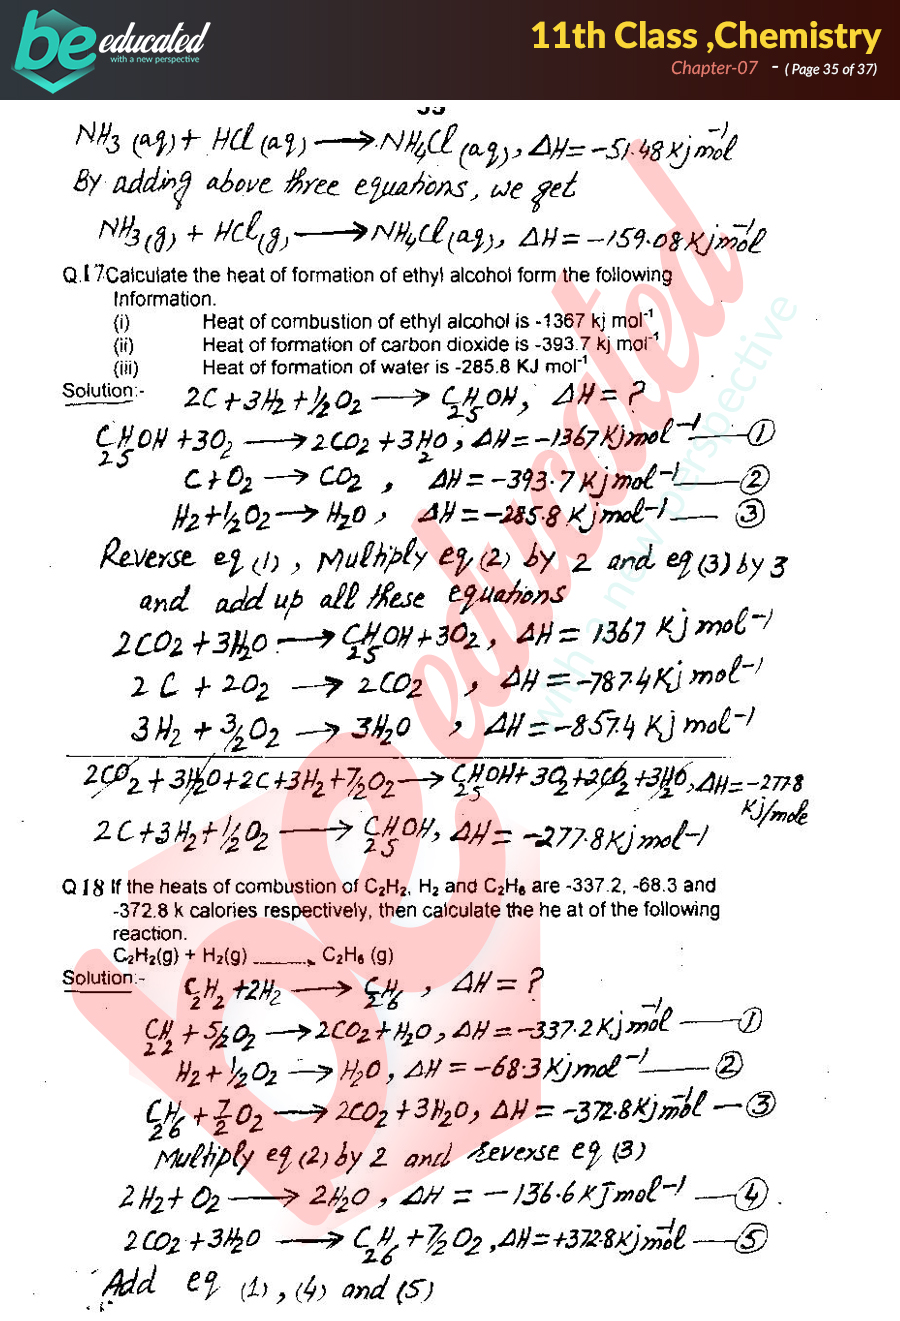 be educated
with a new perspective
11th Class ,Chemistry
Chapter-07 - ( Page 35 of 37)
NH3 (aq) + HCl (aq) ⟶ NH4Cl (aq), ΔH = -51.48 Kj mol⁻¹
By adding above three equations, we get
NH3(g) + HCl(g) ⟶ NH4Cl(aq), ΔH = -159.08 Kj mol⁻¹
Q.17 Calculate the heat of formation of ethyl alcohol form the following
Information.
(i) Heat of combustion of ethyl alcohol is -1367 kj mol⁻¹
(ii) Heat of formation of carbon dioxide is -393.7 kj mol⁻¹
(iii) Heat of formation of water is -285.8 KJ mol⁻¹
Solution:- 2C + 3H2 + 1/2 O2 ⟶ C2H5OH, ΔH = ?
C2H5OH + 3O2 ⟶ 2CO2 + 3H2O, ΔH = -1367 Kj mol⁻¹ — ①
C + O2 → CO2, ΔH = -393.7 Kj mol⁻¹ — ②
H2 + 1/2 O2 → H2O, ΔH = -285.8 Kj mol⁻¹ — ③
Reverse eq (1), Multiply eq (2) by 2 and eq (3) by 3
and add up all these equations
2CO2 + 3H2O ⟶ C2H5OH + 3O2, ΔH = 1367 Kj mol⁻¹
2C + 2O2 → 2CO2, ΔH = -787.4 Kj mol⁻¹
3H2 + 3/2 O2 → 3H2O, ΔH = -857.4 Kj mol⁻¹
2CO2 + 3H2O + 2C + 3H2 + 7/2 O2 ⟶ C2H5OH + 3O2 + 2CO2 + 3H2O, ΔH = -277.8
Kj/mole
2C + 3H2 + 1/2 O2 ⟶ C2H5OH, ΔH = -277.8 Kj mol⁻¹
Q 18 If the heats of combustion of C₂H₂, H₂ and C₂H₆ are -337.2, -68.3 and
-372.8 k calories respectively, then calculate the he at of the following
reaction.
C₂H₂(g) + H₂(g) ⟶ C₂H₆ (g)
Solution:- C2H2 + 2H2 ⟶ C2H6, ΔH = ?
C2H2 + 5/2 O2 → 2CO2 + H2O, ΔH = -337.2 Kj mol⁻¹ — ①
H2 + 1/2 O2 → H2O, ΔH = -68.3 Kj mol⁻¹ — ②
C2H6 + 7/2 O2 ⟶ 2CO2 + 3H2O, ΔH = -372.8 Kj mol⁻¹ — ③
Multiply eq (2) by 2 and reverse eq (3)
2H2 + O2 ⟶ 2H2O, ΔH = -136.6 KJ mol⁻¹ — ④
2CO2 + 3H2O ⟶ C2H6 + 7/2 O2, ΔH = +372.8 Kj mol⁻¹ — ⑤
Add eq (1), (4) and (5)